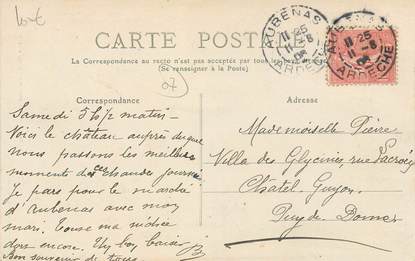 AUBENAS
11 25
11-8
ARDECHE
AUBENAS
11 25
11-8
ARDECHE
CARTE POSTALE
La Correspondance au recto n'est pas acceptée par tous les pays étrangers
(Se renseigner à la Poste)
07
Correspondance
Adresse
Samedi 5h ½ matin -
Voici le château auprès duquel
nous passons les meilleurs
moments des chaudes journées
Je pars pour le marché
d'Aubenas avec mon
mari. Toute ma
dort encore. Un bon baiser
Bon souvenir de tous
Mademoiselle Pierre
Villa des Glycines, rue Lacroix
Chatel-Guyon
Puy-de-Dome